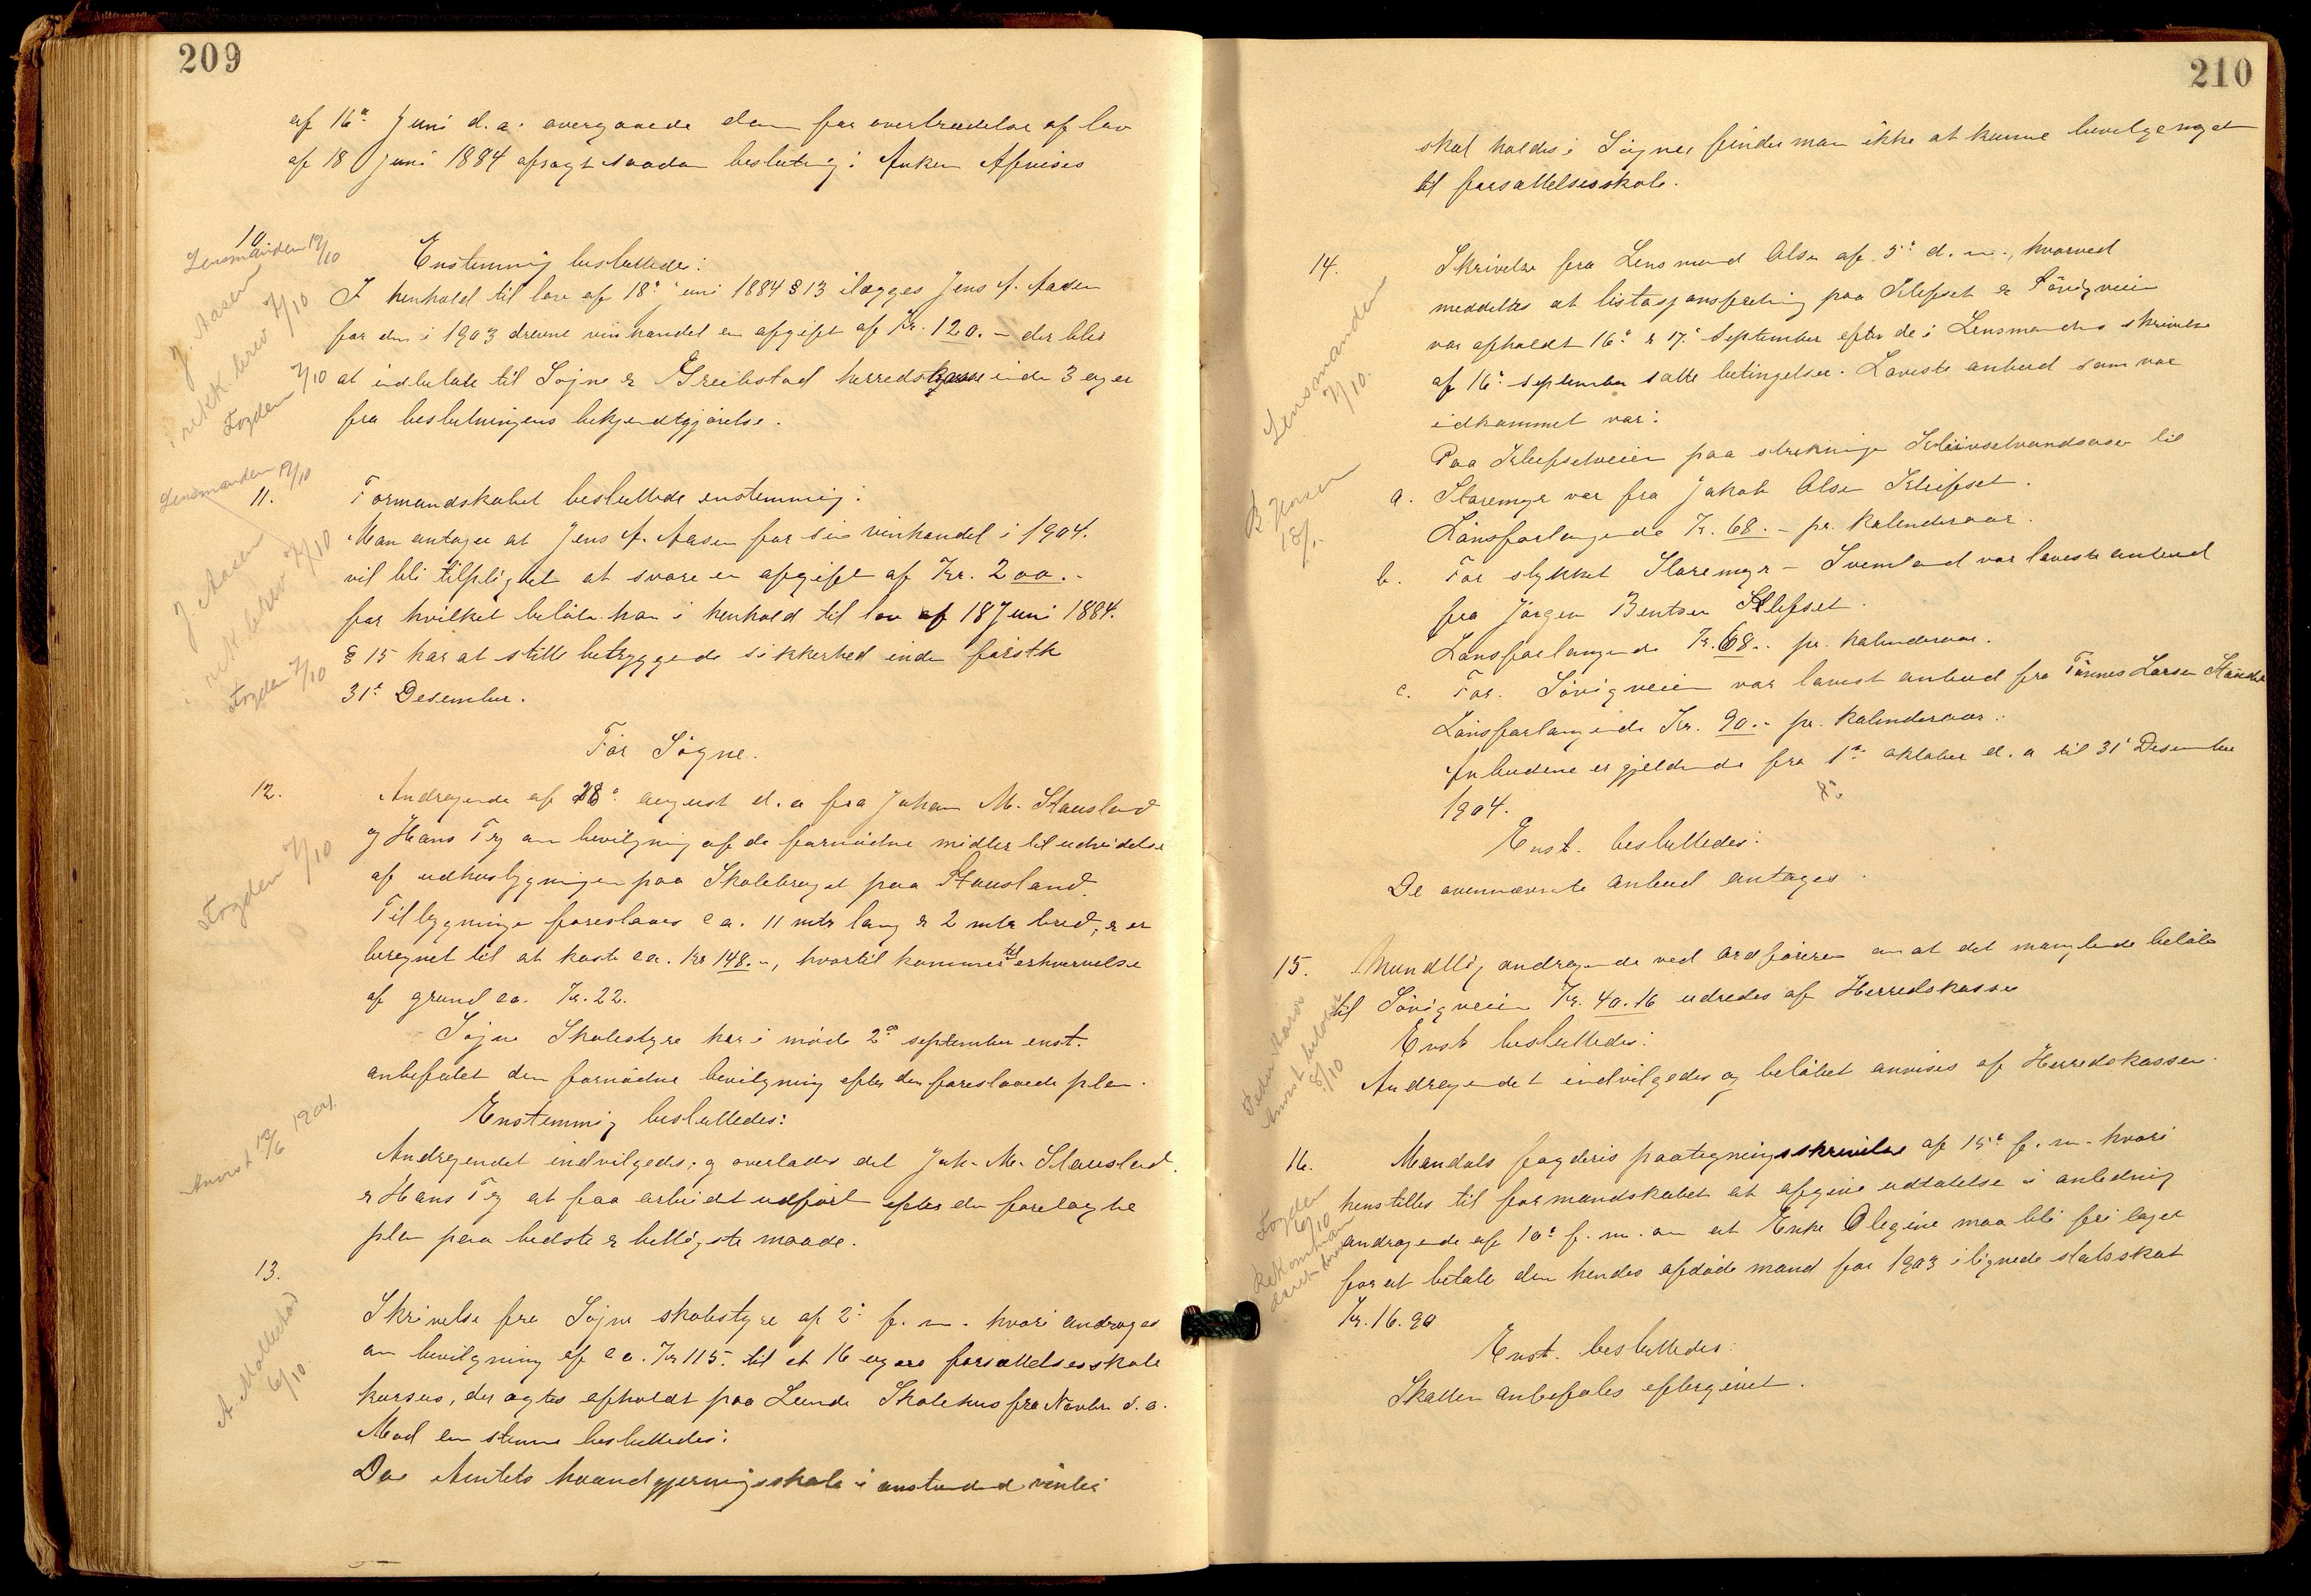 209
af 16de Juni d.a. overgaaede dom for overtrædelse af lov
af 18 juni 1884 afsagt saadan beslutning: Anken Afvises
10. Lensmanden 12/10
Enstemmig besluttedes:
J. Aasen
i rekk. brev 7/10
Fogden 7/10
I henhold til lov af 18de juni 1884 § 13 ilægges Jens A. Aasen
for den i 1903 drevne vinhandel en afgift af Kr. 120.- der blir
at indbetale til Søgne & Greibstad herredskasse inden 3 uger
fra beslutningens bekjendtgjørelse.
Lensmanden 12/10
11. Formandskabet besluttede enstemmig:
J. Aasen
i rek. brev 7/10
Fogden 7/10
Man antager at Jens A. Aasen for sin vinhandel i 1904.
vil bli tilpligtet at svare en afgift af Kr. 200.-
for hvilket beløb han i henhold til lov af 18 Juni 1884.
§ 15 har at stille betryggende sikkerhed inden førstk
31te Desember.
For Søgne.
12. Andragende af 28de august d.a fra Johan M. Stausland
Fogden 7/10
og Hans Try om bevilgning af de fornødne midler til udvidelse
af udhusbygningen paa Skolebruget paa Stausland.
Tilbygningen foreslaaes ca. 11 mtr lang & 2 mtr bred, & er
beregnet til at koste ca. Kr 148.-, hvortil kommer til erhvervelse
af grund ca. Kr. 22.
Søgne Skolestyre har i møde 2den september enst.
anbefalet den fornødne bevilgning efter den foreslaaede plan.
Enstemmig besluttedes:
Anvist 13/6 1904.
Andragendet indvilgedes, og overlades det Joh. M. Stausland.
& Hans Try at faa arbeidet udført efter den forelagte
plan paa bedste & billigste maade.
13.
A. Mollestad
6/10.
Skrivelse fra Søgne skolestyre af 2den f.m. hvori andrages
om bevilgning af ca. Kr 115. til et 16 ugers forsættelsesskole
kursus, der agtes afholdt paa Lunde Skolehus fra Novbr. d.a.
Mod en stemme besluttedes:
Da Amtets haandgjerningsskole i anstundende vinter
210
skal holdes i Søgne finder man ikke at kunne bevilge noget
til forsættelsesskole.
14. Skrivelse fra Lensmand Olsen af 5te d.m., hvorved
Lensmanden
7/10.
meddeles at listasjonsforetning paa Klepset & Søvigveien
var afholdt 16de & 17de September efter de i Lensmandens skrivelse
af 16de september satte betingelser. Laveste anbud som var
idkommet var:
Paa Klepsetveien paa strekningen til
a. Staremyr var fra Jakob Olsen Klepset.
Lønsforlangende Kr. 68.- pr. kalenderaar.
b. For stykket Staremyr - Svemland var laveste anbud
fra Jørgen Bentsen Klepset.
Lønsforlangende Kr. 68.- pr. kalenderaar.
c. For Søvigveien var lavest anbud fra Tønnes Larsen
Lønsforlangende Kr. 90.- pr. kalenderaar.
Anbudene er gjeldende fra 1ste oktober d.a til 31te Desember
1904.
Enst. besluttedes:
De ovennævnte anbud antages.
15. Mundtlig andragende ved ordføreren om at det manglende beløb
til Søvigveien Kr. 40.16 udredes af Herredskassen
Enst besluttedes:
Anvist
8/10
Andragendet indvilgedes og beløbet anvises af Herredskassen.
16. Mandals fogderis paategningsskrivelse af 15de f.m. hvori
Fogden
6/10
henstilles til formandskabet at afgive udtalelse i anledning
andragende af 10de f.m. om at Enke Olegine maa bli fri taget
for at betale den hendes afdøde mand for 1903 ilignede statsskat
Kr. 16.90
Enst. besluttedes:
Skatten anbefales eftergivet.